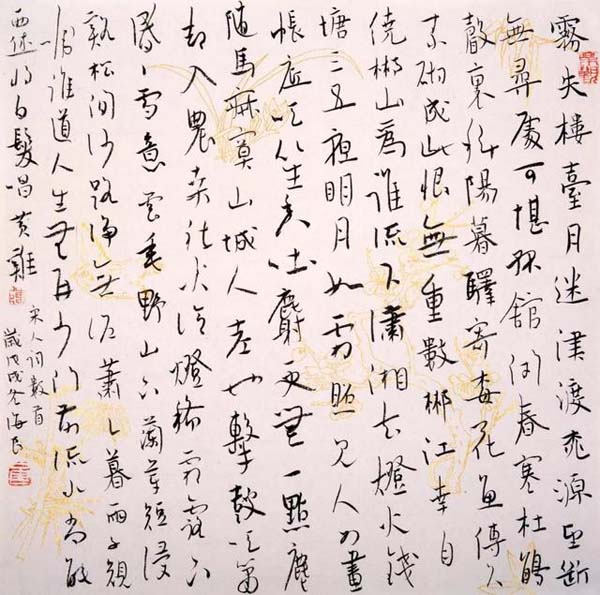 霧失樓臺月迷津渡桃源望斷
無尋處可堪孤館閉春寒杜鵑
聲裏斜陽暮驛寄梅花魚傳尺
素砌成此恨無重數郴江幸自
繞郴山為誰流下瀟湘去燈火錢
塘三五夜明月如霜照見人如畫
帳底吹笙香吐麝更無一點塵
隨馬寂寞山城人老也擊鼓吹簫
却入農桑社火冷燈稀霜露下
昏昏雪意雲垂野山下蘭芽短浸
谿松間沙路淨無泥蕭蕭暮雨子規
啼誰道人生無再少門前流水尚能
西休將白髮唱黃雞
宋人詞數首
歲戊戌冬海民